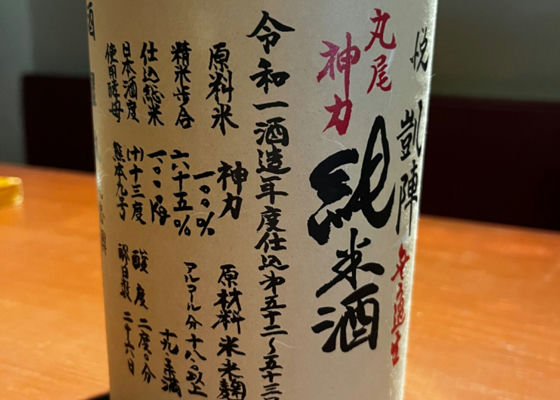 悦 凱陣
丸尾
神力
純米酒
令和一酒造年度仕込 第五十二〜五十三
原料米 神力 一〇〇%
精米歩合 六十五%
仕込総米
日本酒度 (+)十三度
使用酵母 熊本九号
原材料 米・米麹
アルコール分 十八以上
酸度 二度
二十六日
酒